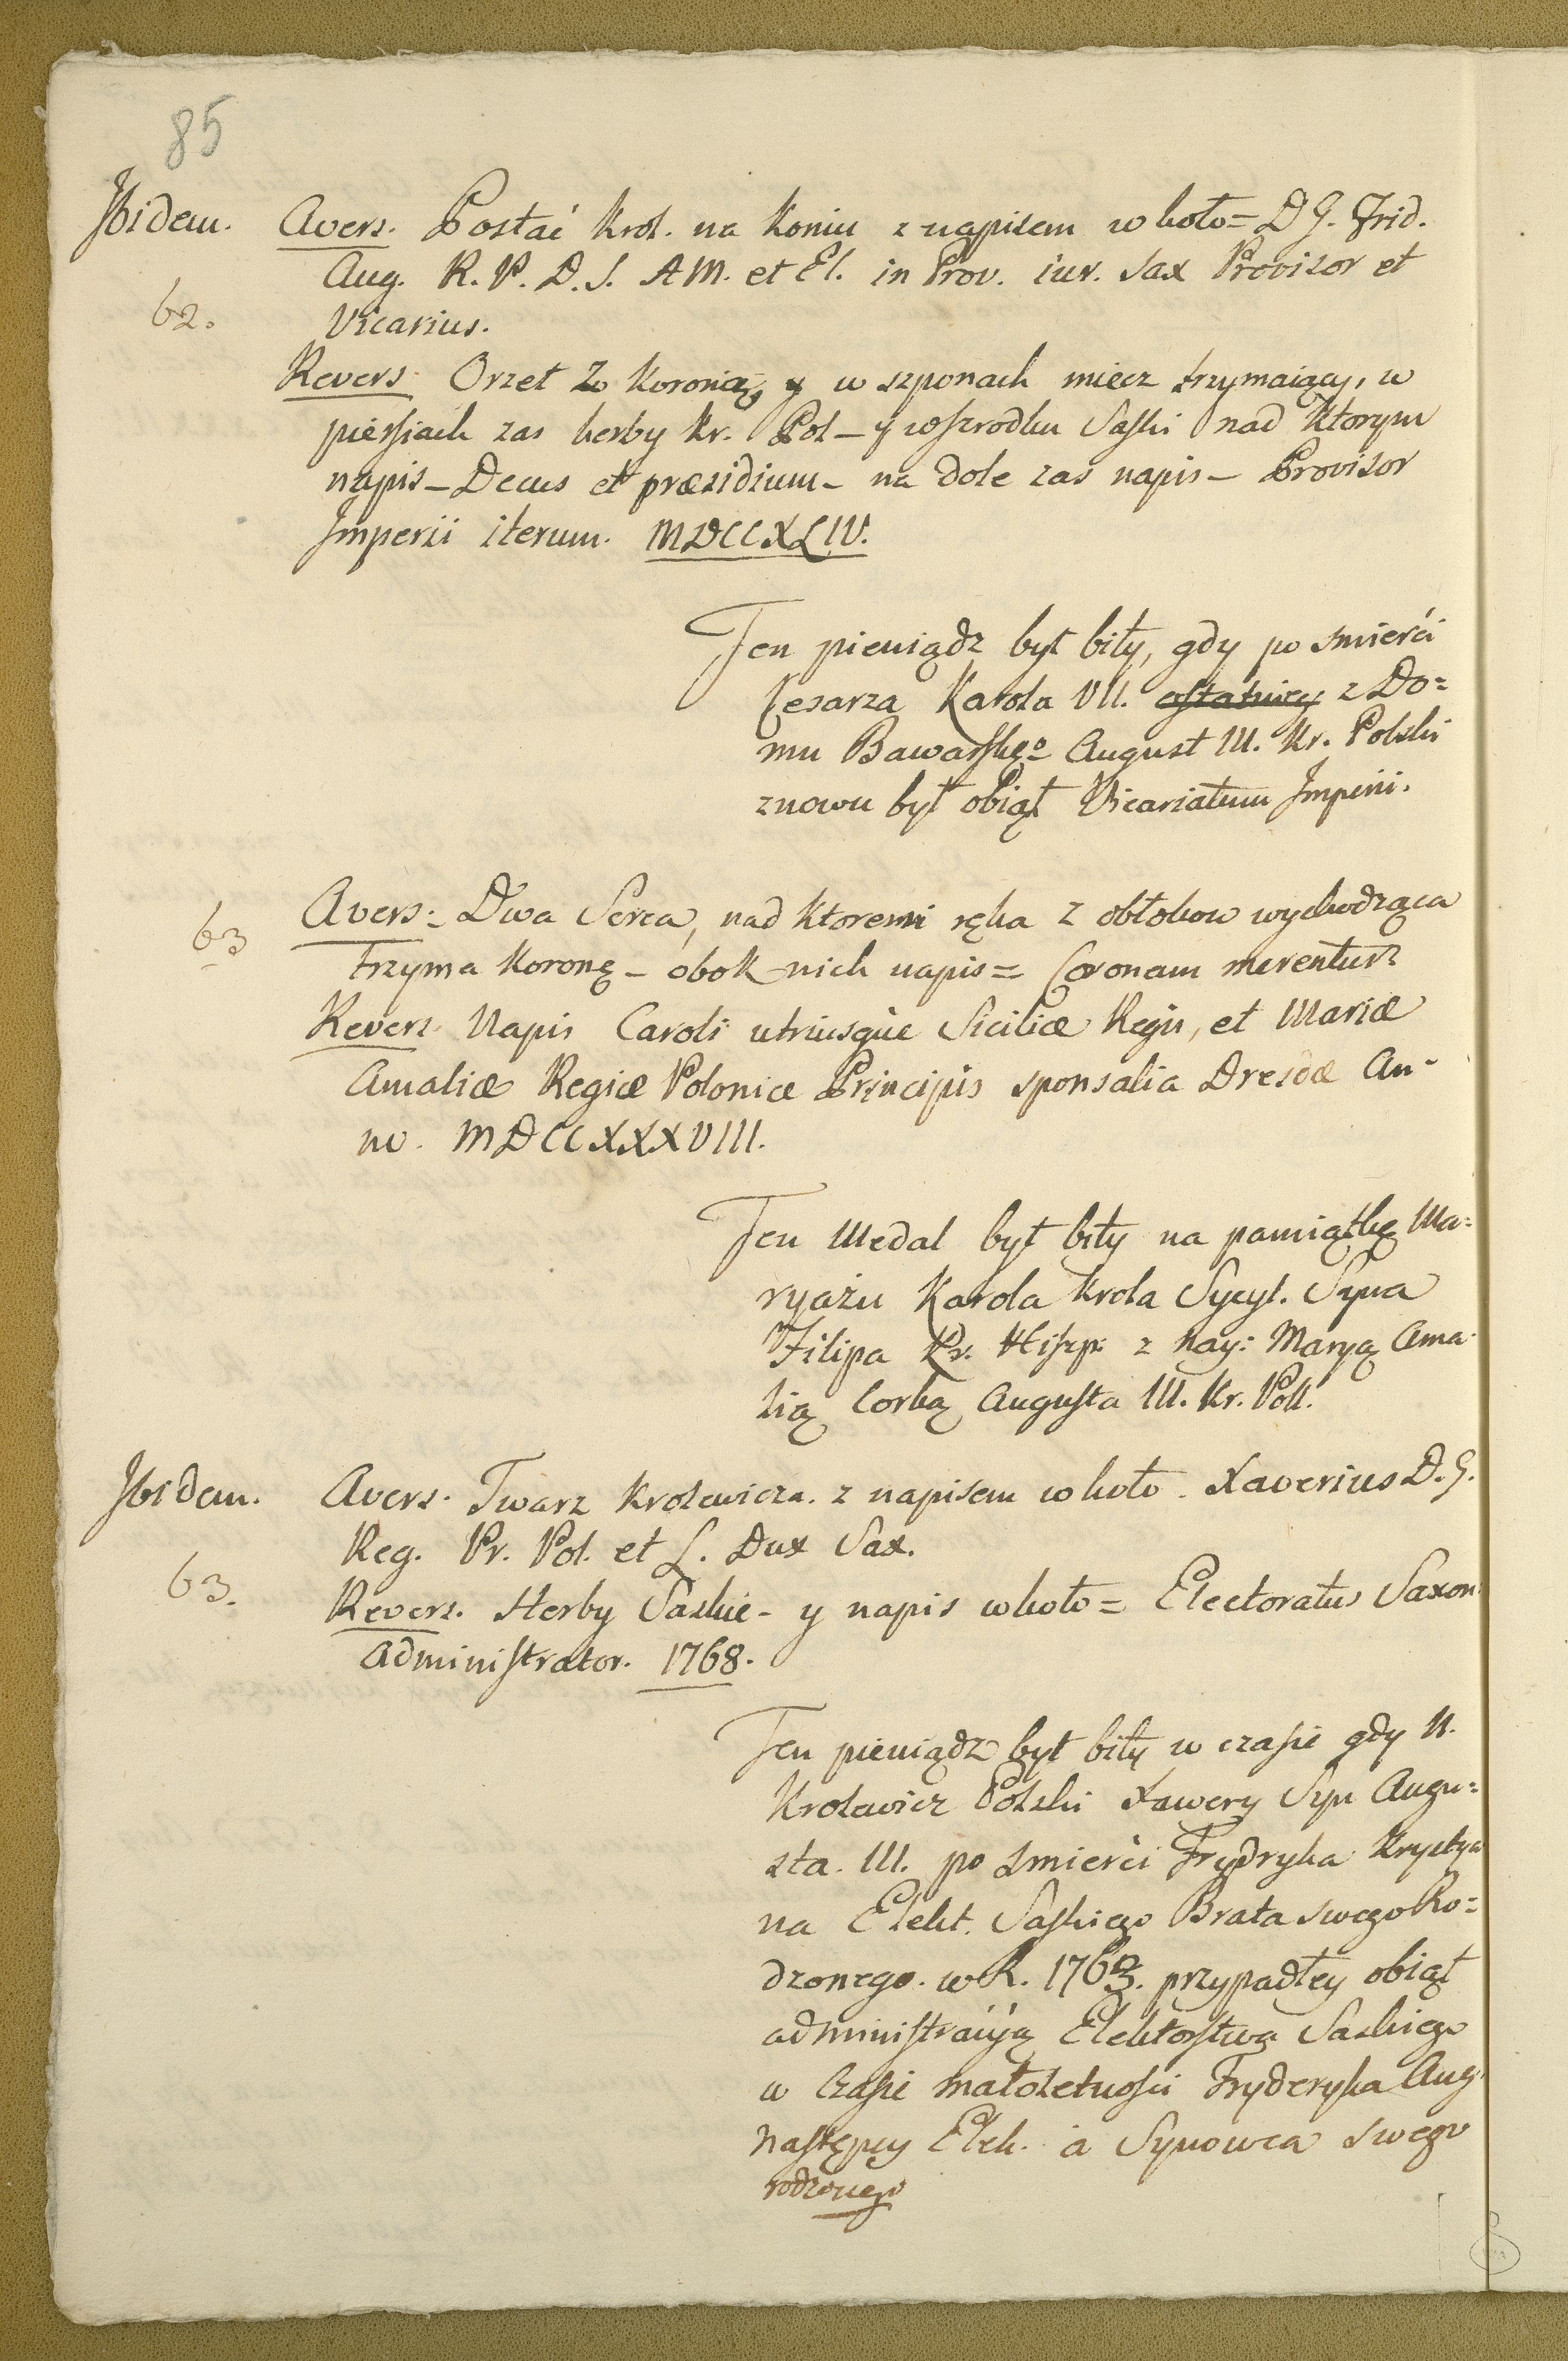 85
Ibidem. Avers. Postać Krol. na Koniu z napisem w koło = D G. Frid.
Aug. R. P. D. S. A M. et El. in Prov. iur. Sax Provisor et
62. Vicarius.
Revers Orzeł z Koroną, y w szponach miecz trzymaiący, w
piersiach zas herby Kr. Pol – y w szrodku Saski nad Ktorym
napis – Decus et præsidium – na dole zas napis – Provisor
Imperii iterum. MDCCXLIV.
Ten pieniądz był biły, gdy po smierći
Cesarza Karola VII. ostatniey z Do=
mu Bawarskego August III. Kr. Polski
znowu był obiął Vicariatum Imperii.
63 Avers: Dwa Serca, nad Ktoremi ręka z obłokow wychodząca
trzyma Koronę – obok nich napis = Coronam merentur
Revers. Napis Caroli utriusque Siciliæ Regis, et Mariæ
Amaliæ Regiæ Poloniæ Principis sponsalia Dresdæ An-
no. MDCCXXXVIII.
Ten Medal był biły na pamiątkę Ma=
ryażu Karola Krola Sycyl. Syna
Filipa Kr. Hiszp: z Nay: Maryą Ama-
lią Corką Augusta III. Kr. Poll.
Ibidem. Avers. Twarz Krolewicza. z napisem w koło. Xaverius D. G.
Reg. Pr. Pol. et L. Dux Sax.
63. Revers. Herby Saskie – y napis w koło = Electoratus Saxon.
Administrator. 1768.
Ten pieniądz był biły w czasie gdy N.
Krolewicz Polski Xawery Syn Augu=
sta. III. po smierći Frydryka Krystya
na Elekt. Saskiego Brata swego Ro=
dzonego. w R. 1763. przypadłey obiął
administracyą Elektorstwa Saskiego
w czasie małoletnosci Fryderyka Aug.
następcy Elek. a Synowca swego
rodzonego